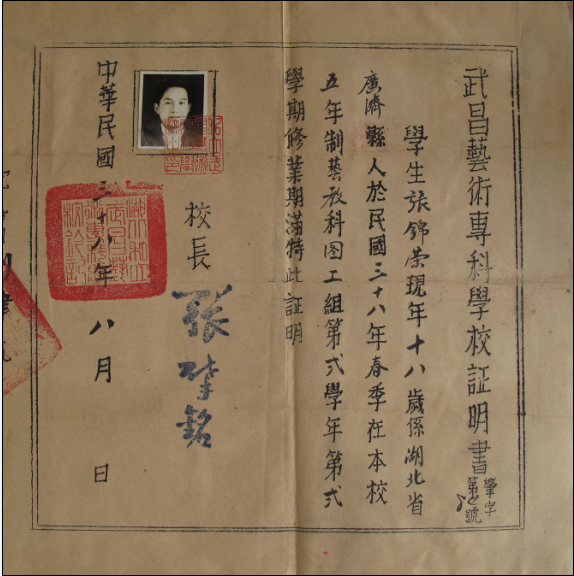 武昌藝術專科學校証明書
肇字
第 號
學生張錦荣現年十八歲係湖北省
廣濟縣人於民國三十八年春季在本校
五年制藝教科图工組第弍學年第弍
學期修業期滿特此証明
校長
張肇銘
中華民國三十八年八月 日